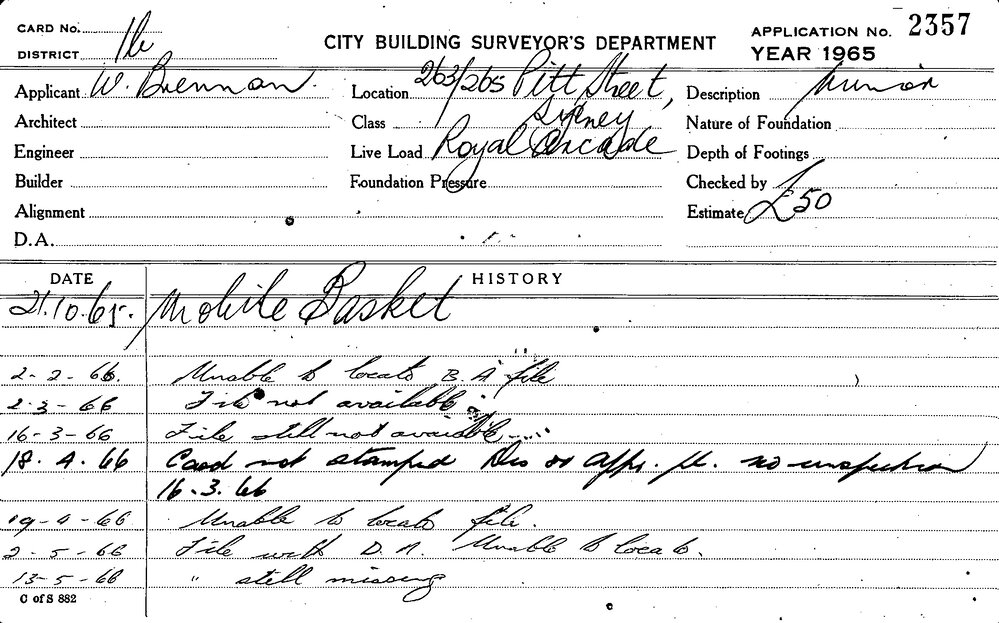 CARD No.
DISTRICT
CITY BUILDING SURVEYOR'S DEPARTMENT
APPLICATION No. 2357
YEAR 1965
Applicant W. Brennan.
Location 263/265 Pitt Street,
Sydney
Description
Architect
Class
Nature of Foundation
Engineer
Live Load Royal Arcade
Depth of Footings
Builder
Foundation Pressure
Checked by
Alignment
Estimate £50
D.A.
DATE
HISTORY
21.10.65. Mobile Basket
2-2-66. Unable to locate B.A file
2-3-66 File not available
16-3-66 File still not available
18.4.66 Card not stamped Dis or appr. no inspection
16.3.66
19-4-66 Unable to locate file.
2-5-66 File with D.A. Unable to locate.
13-5-66 " still missing
C of S 882